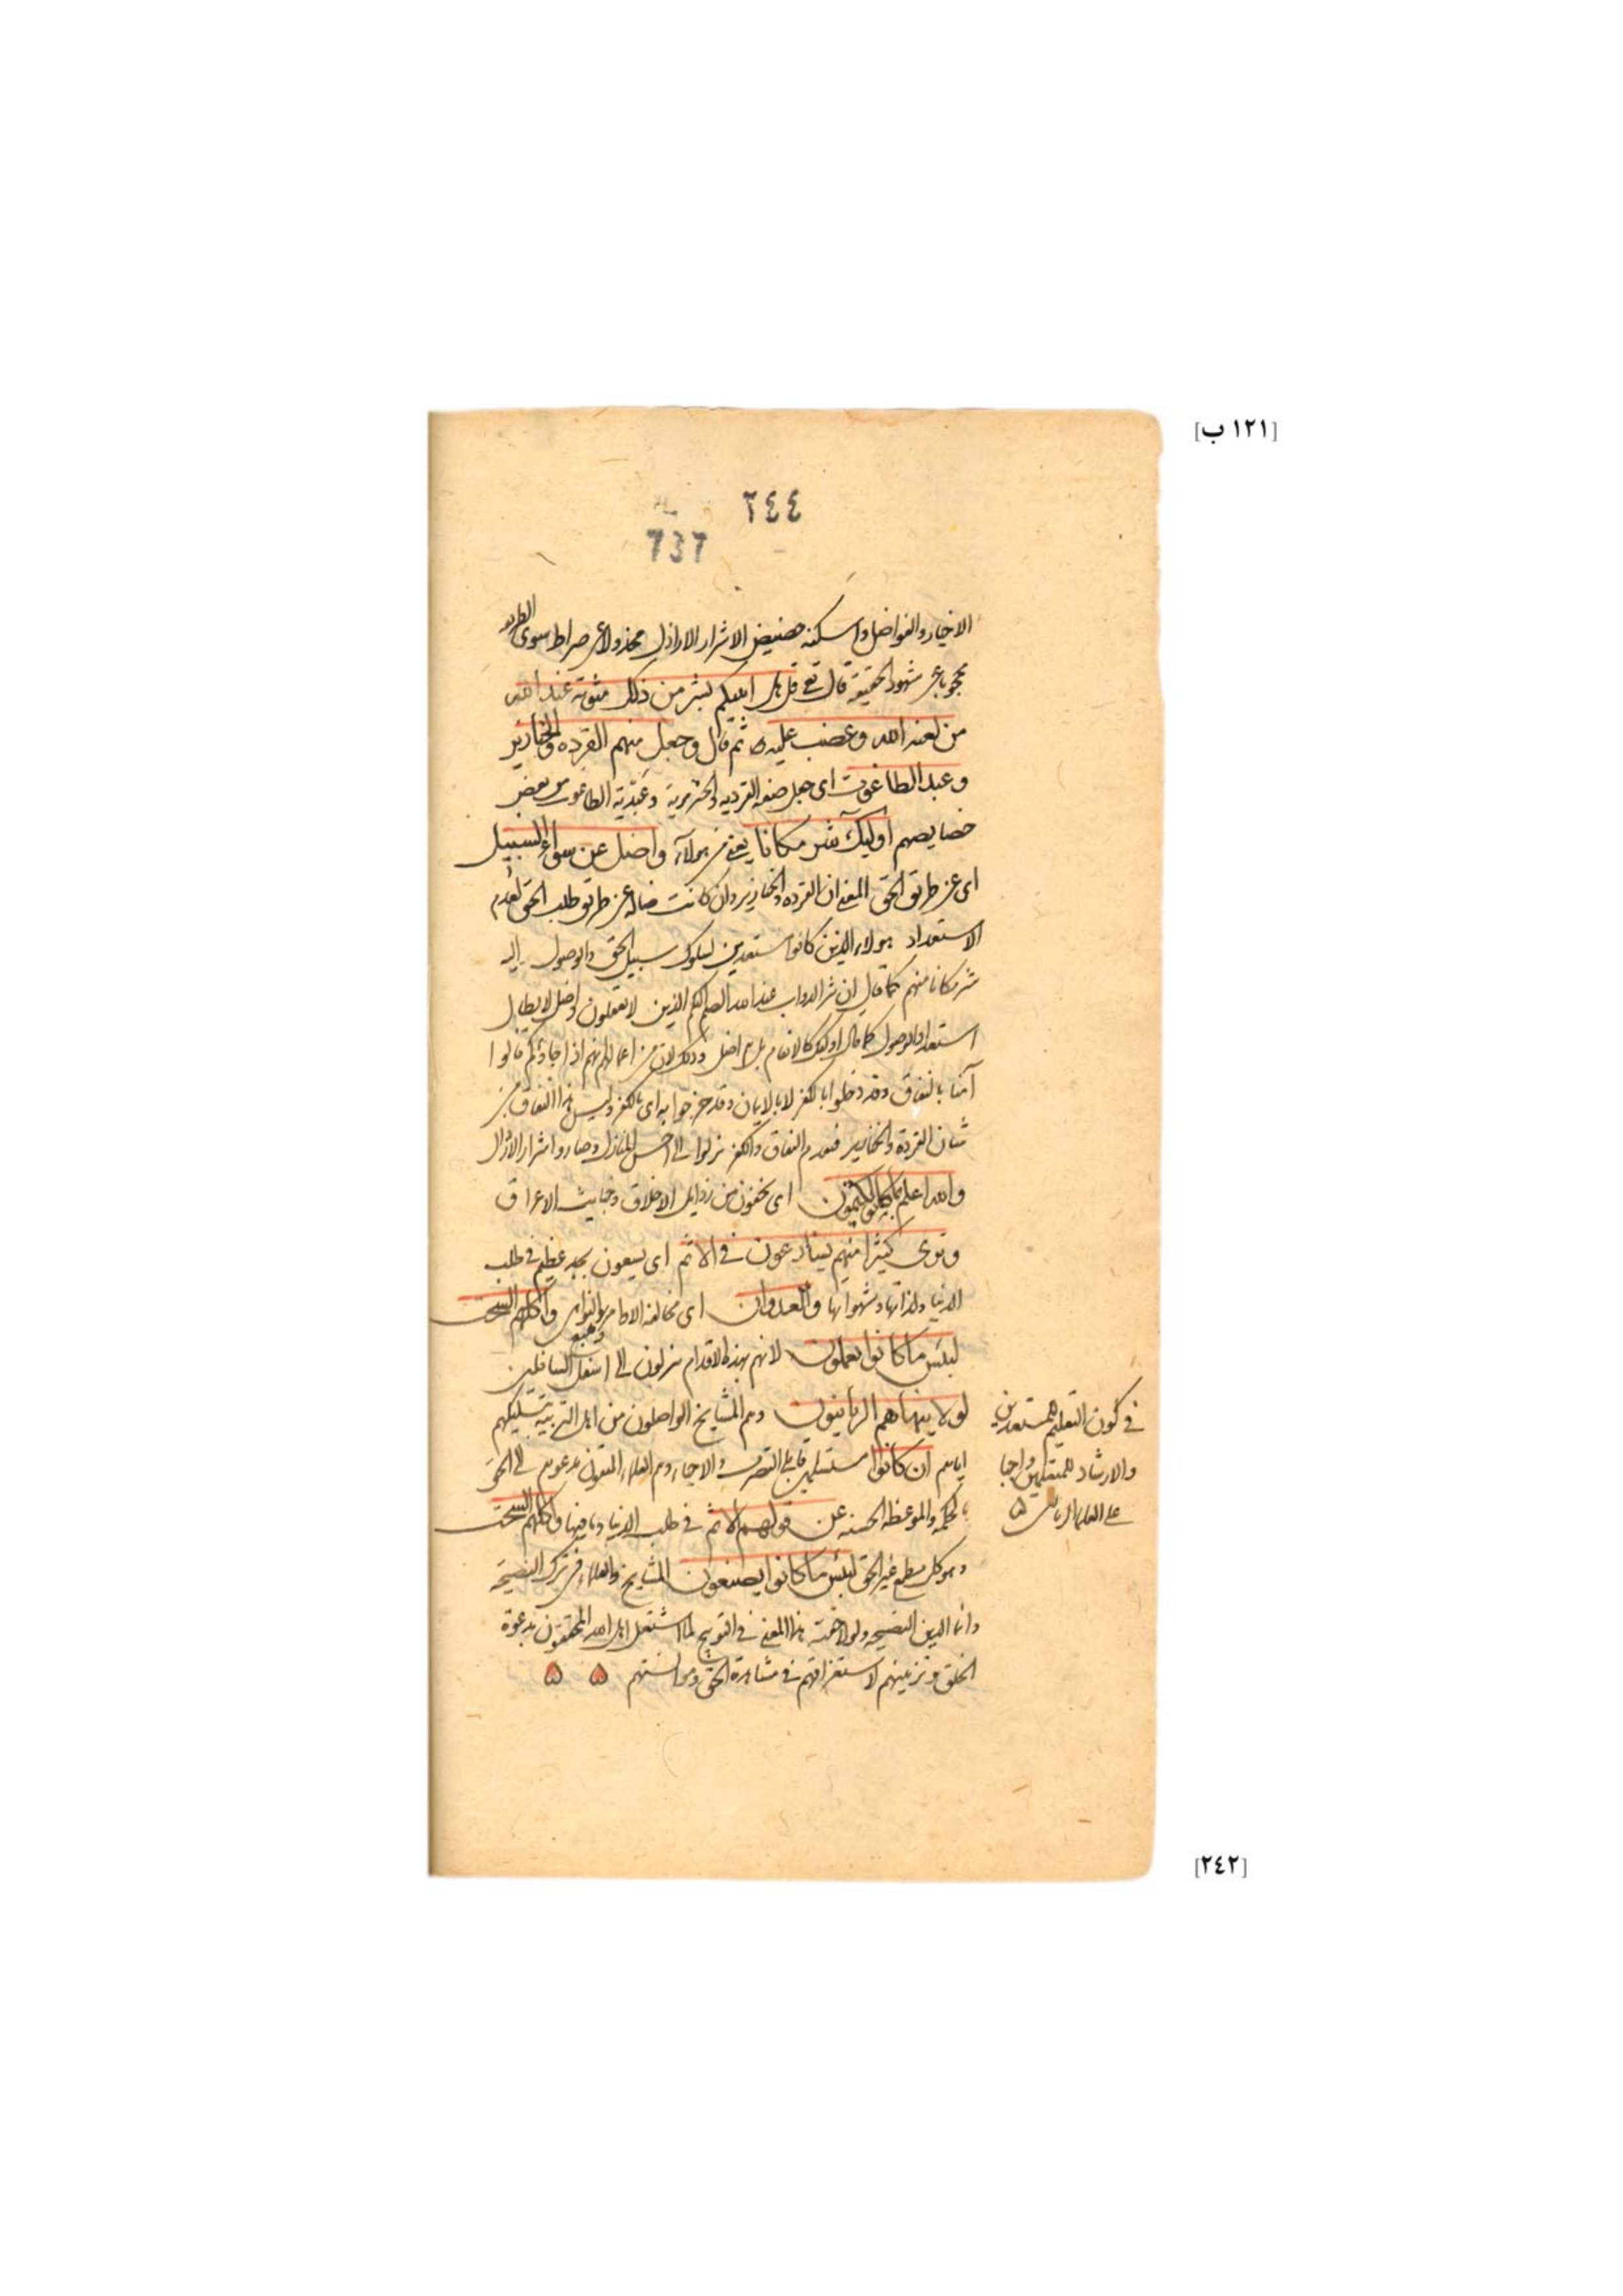 [١٢١ ب]
٢٤٤
737
الاخيار والفواضل واسكنه حضيض الاشرار الاراذل مخذولا عن صراط سوى الطريقة
محجوبا عن شهود الحقيقة قال تع قل هل انبئكم بشر من ذلك مثوبة عند الله
من لعنه الله وغضب عليه ثم قال وجعل منهم القردة والخنازير
وعبد الطاغوت اى جعل صفة القردية والخنزيرية وعبدية الطاغوت من بعض
خصايصهم اوليك شر مكانا يعنى من هولاء واضل عن سواء السبيل
اى عن طريق الحق المعنى ان القردة والخنازير وان كانت ضالة عن طريق طلب الحق لعدم
الاستعداد هولاء الذين كانوا مستعدين لسلوك سبيل الحق والوصول اليه
شر مكانا منهم كما قال ان شر الدواب عند الله الصم البكم الذين لا يعقلون واضل لابطال
استعداد الوصول كما قال اوليك كالانعام بل هم اضل وذلك لان من اعمالهم انهم اذا جاؤكم قالوا
آمنا بالنفاق وقد دخلوا بالكفر لا بالايمان وقد خرجوا به اى بالكفر وليس هذا النفاق من
شان القردة والخنازير فبقدم النفاق والكفر نزلوا الى اخس المنازل وصاروا اشرار الارذال
والله اعلم بما كانوا يكتمون اى يخفون من رذايل الاخلاق وخبايث الاعراق
وترى كثيرا منهم يسارعون فى الاثم اى يسعون بجد عظيم فى طلب
الدنيا ولذاتها وشهواتها والعدوان اى مخالفة الاوامر والنواهى واكلهم السحت
لبئس ما كانوا يعملون لانهم بهذه الاقدام ينزلون الى اسفل السافلين
لولا ينهاهم الربانيون وهم المشايخ الواصلون من اهل التربية بتسليكهم
اياهم ان كانوا مستسلمين قابلى التصرف والاحبار وهم العلماء المتقون بدعوتهم الى الحق
بالحكمة والموعظة الحسنة عن قولهم الاثم فى طلب الدنيا وما فيها واكلهم السحت
وهو كل مطمع غير الحق لبئس ما كانوا يصنعون المشايخ والعلماء فى ترك النصيحة
وانما الدين النصيحة ولولا خشية هذا المعنى فى التوبيخ لما اشتغل اهل الله المحققون بدعوة
الخلق وتربيتهم لاستغراقهم فى مشاهدة الحق ومؤانستهم
فى كون التعليم للمستعدين
والارشاد للمتقبلين واجبا
على العلماء الربانى
[٢٤٢]